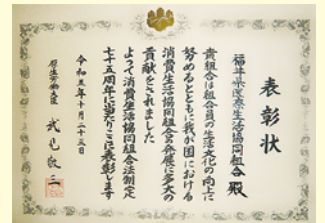 表彰状
福井県医療生活協同組合殿
貴組合は組合員の生活文化の向上に
努めるとともに我が国における
消費生活協同組合の発展に多大の
貢献をされました
よって消費生活協同組合法制定
七十五周年に当たりここに表彰します
令和五年十月二十三日
厚生労働大臣 武見敬三